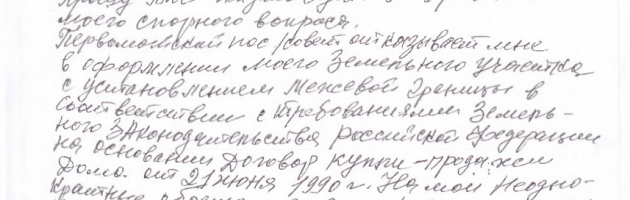 Прошу
моего спорного вопроса.
Первомайский пос/совет отказывает мне
в оформлении моего Земельного участка
с установлением Межевой Границы в
Соответствии с требованиями Земель-
ного Законодательства Российской Федерации
на основании Договор купли-продажи
Дома от 21 июня 1990 г. На мои Неодно-
кратные